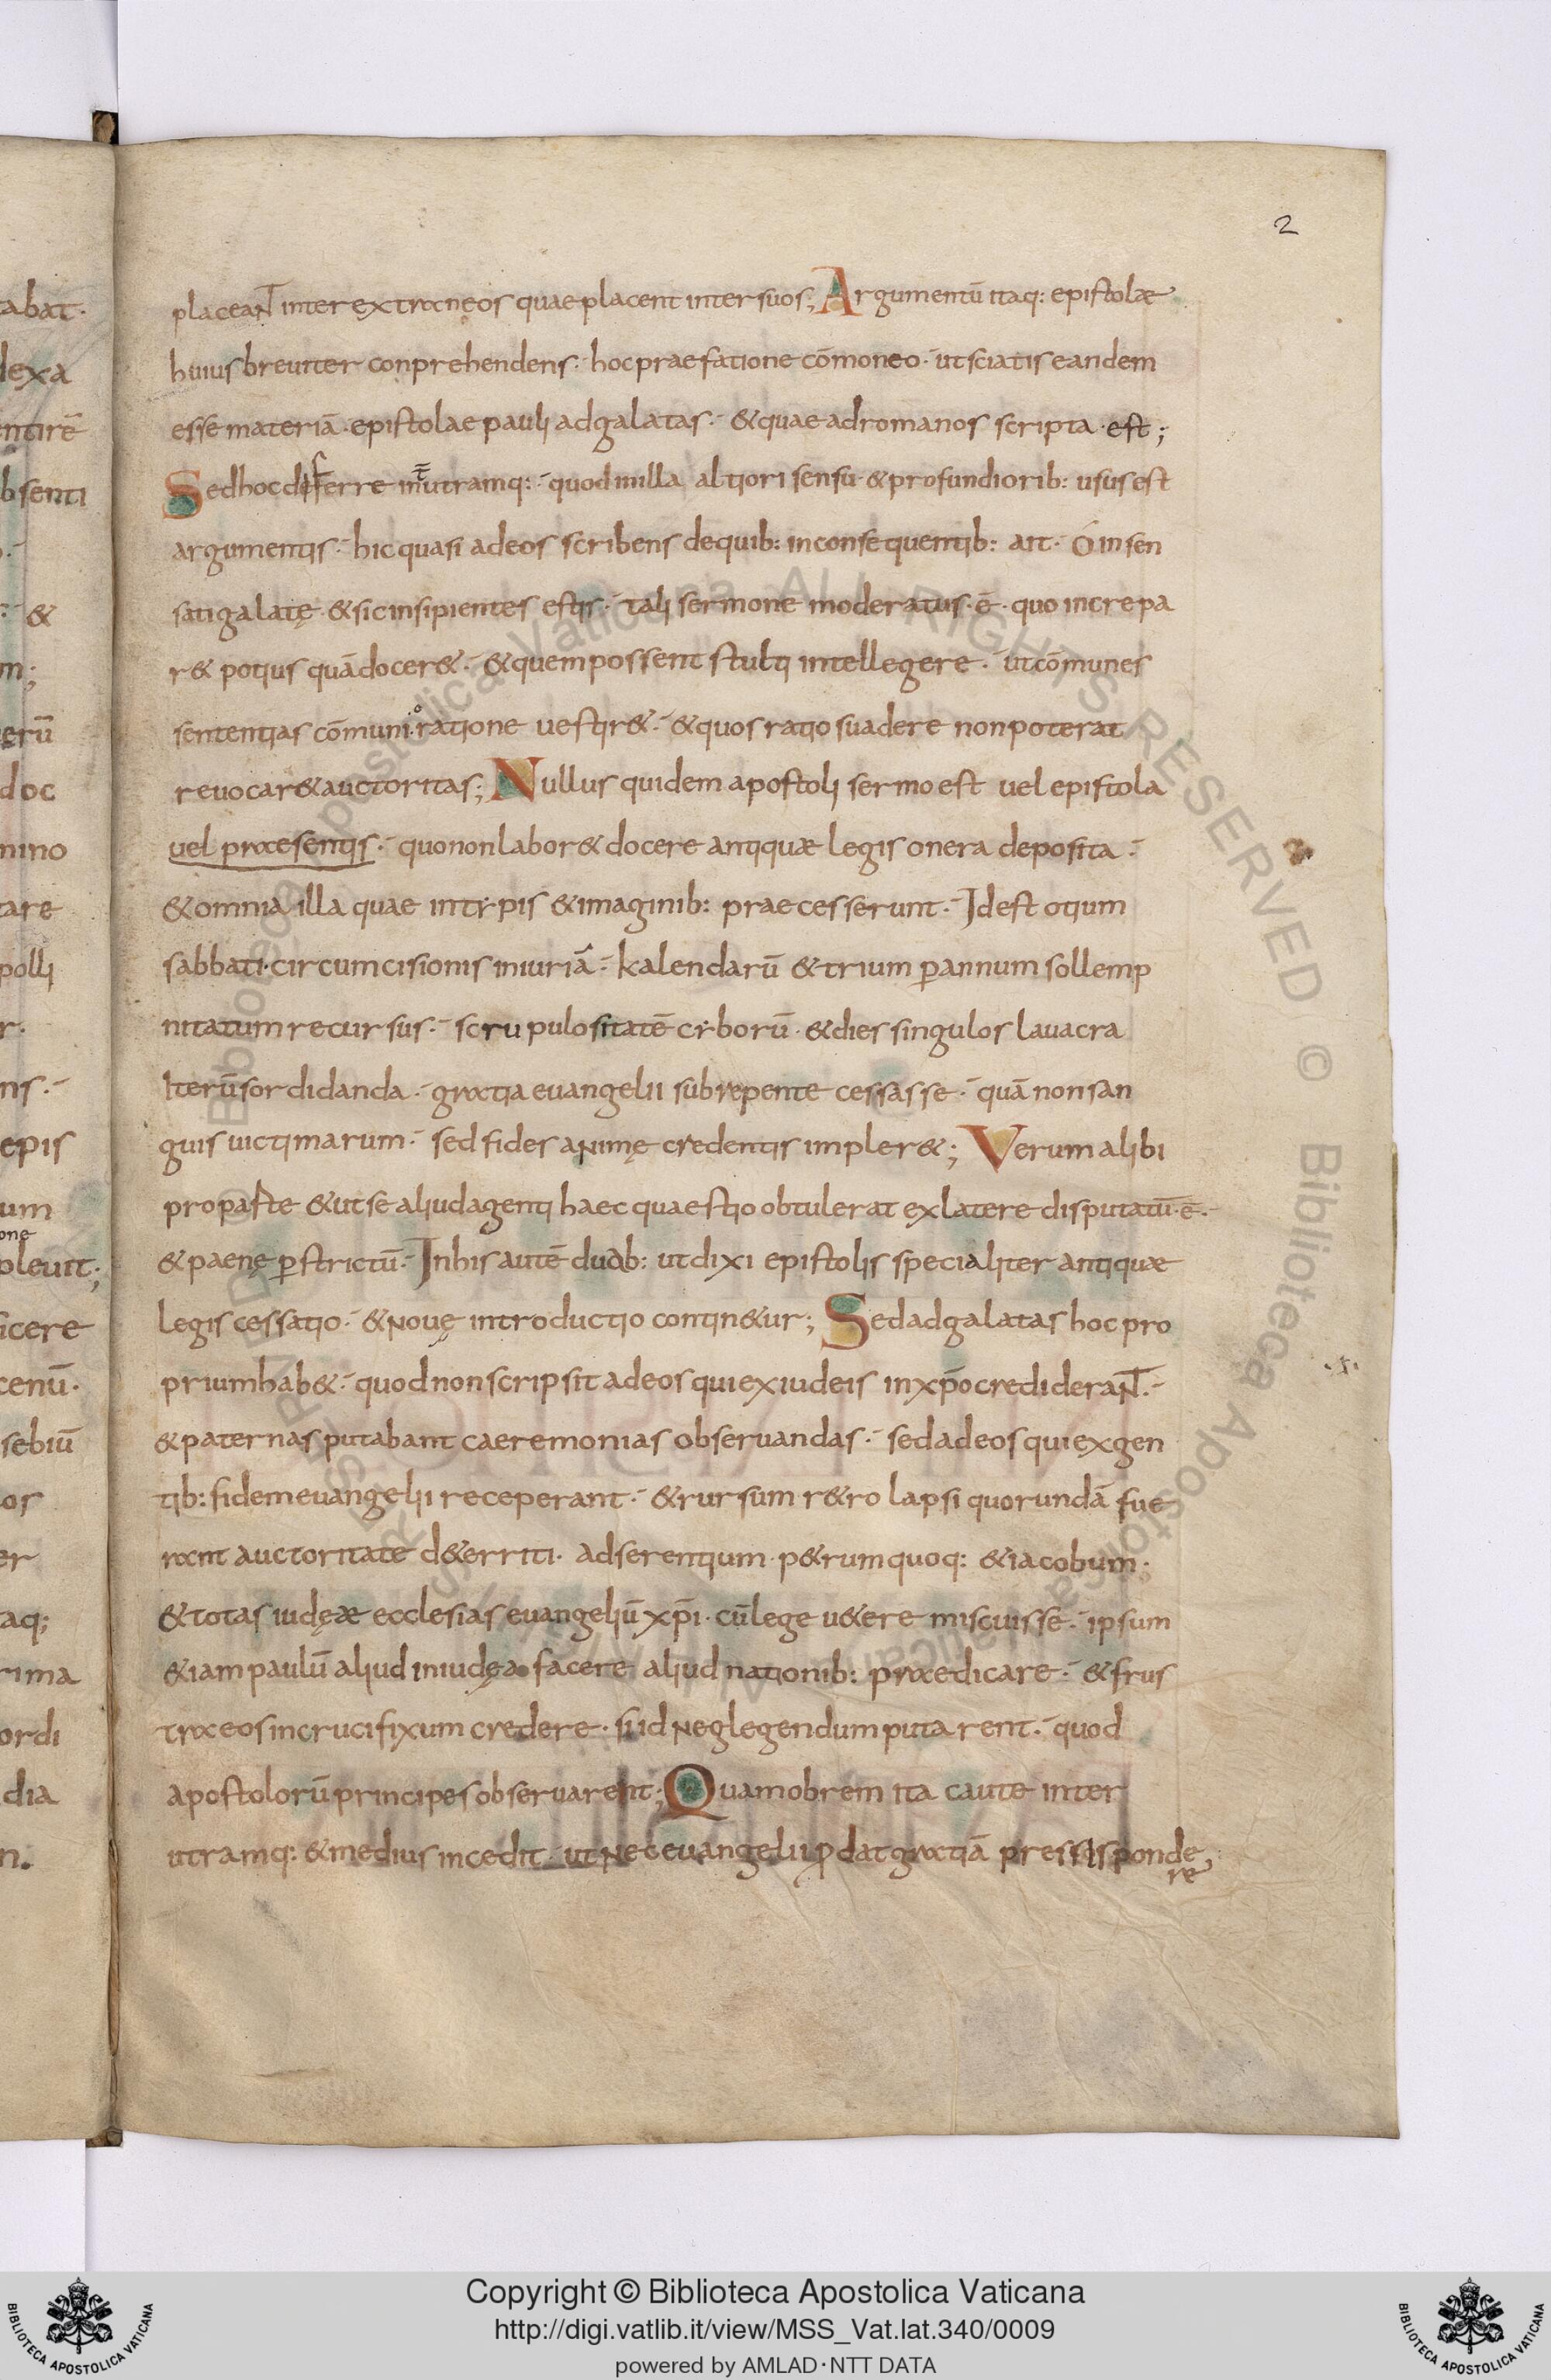 2
placeant inter extraneos quae placent inter suos; Argumentū itaq: epistolae
huius breuiter conprehendens· hoc praefatione cōmoneo· ut sciatis eandem
esse materiā epistolae pauli ad galatas· & quae ad romanos scripta est;
Sed hoc differre in utramq:· quod in illa altiori sensu & profundiorib: usus est
argumentis· hic quasi ad eos scribens de quib: in consequentib: ait· O insen
sati galatę & sic insipientes estis· tali sermone moderatus·ē· quo increpa
r& potius quā docer&· & quem possent stulti intellegere· ut cōmunes
sententias cōmuni ratione uestir&· & quos ratio suadere non poterat
reuocar& auctoritas; Nullus quidem apostoli sermo est uel epistola
uel praesentis· quo non labor& docere antiquae legis onera deposita·
& omnia illa quae in tẏpis & imaginib: praecesserunt· Id est otium
sabbati· circumcisionis iniuriā· kalendarū & trium p̄ annum sollemp
nitatum recursus· scrupulositatē cẏborū· & dies singulos lauacra
Iterū sordidanda· gratia euangelii subrepente cessasse· quā non san
guis uictimarum· sed fides animę credentis impler&; Verum alibi
propaste & ut se aliud agenti haec quaestio obtulerat ex latere disputatū·ē·
& paenę p̄strictū· In his autē duab: ut dixi epistolis specialiter antiquae
legis cessatio· & nouę introductio contin&ur; Sed ad galatas hoc pro
prium hab&· quod non scripsit ad eos qui ex iudeis in xp̄o crediderant·
& paternas putabant caeremonias obseruandas· sed ad eos qui ex gen
tib: fidem euangelii receperant· & rursum r&ro lapsi quorundā fue
rant auctoritate d&erriti· adserentium· p&rum quoq: & iacobum·
& totas iudęae ecclesias euangeliū xp̄i· cū lege u&ere miscuisse· ipsum
&iam paulū aliud in iudęa facere aliud nationib: praedicare· & frus
tra eos in crucifixum credere· si id neglegendum putarent· quod
apostolorū principes obseruarent; Quam ob rem ita caute inter
utramq: & medius incedit· ut nec euangelii ꝓdat gratiā pressus ponde
re
abat·
lexa
entirē
bsenti
&
m;
erū
doc
nino
tare
polli
r·
ns·
epis
um
one
pleuit;
icere
cenū·
sebiū
os
er
taq;
rima
ordi
dia
n.
© Biblioteca Apostolica Vaticana ALL RIGHTS RESERVED © Biblioteca Apostolica Vaticana
Copyright © Biblioteca Apostolica Vaticana
http://digi.vatlib.it/view/MSS_Vat.lat.340/0009
powered by AMLAD·NTT DATA
BIBLIOTECA APOSTOLICA VATICANA
BIBLIOTECA APOSTOLICA VATICANA